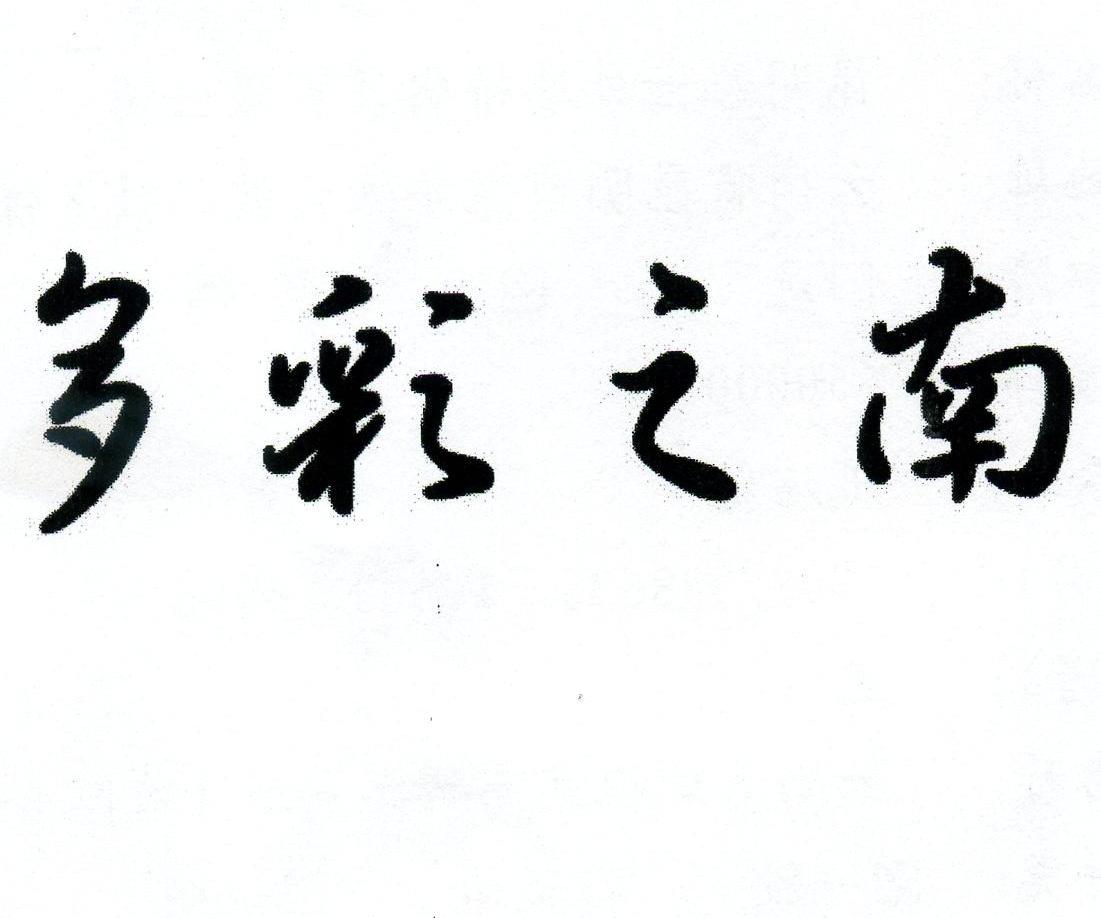 多彩之南